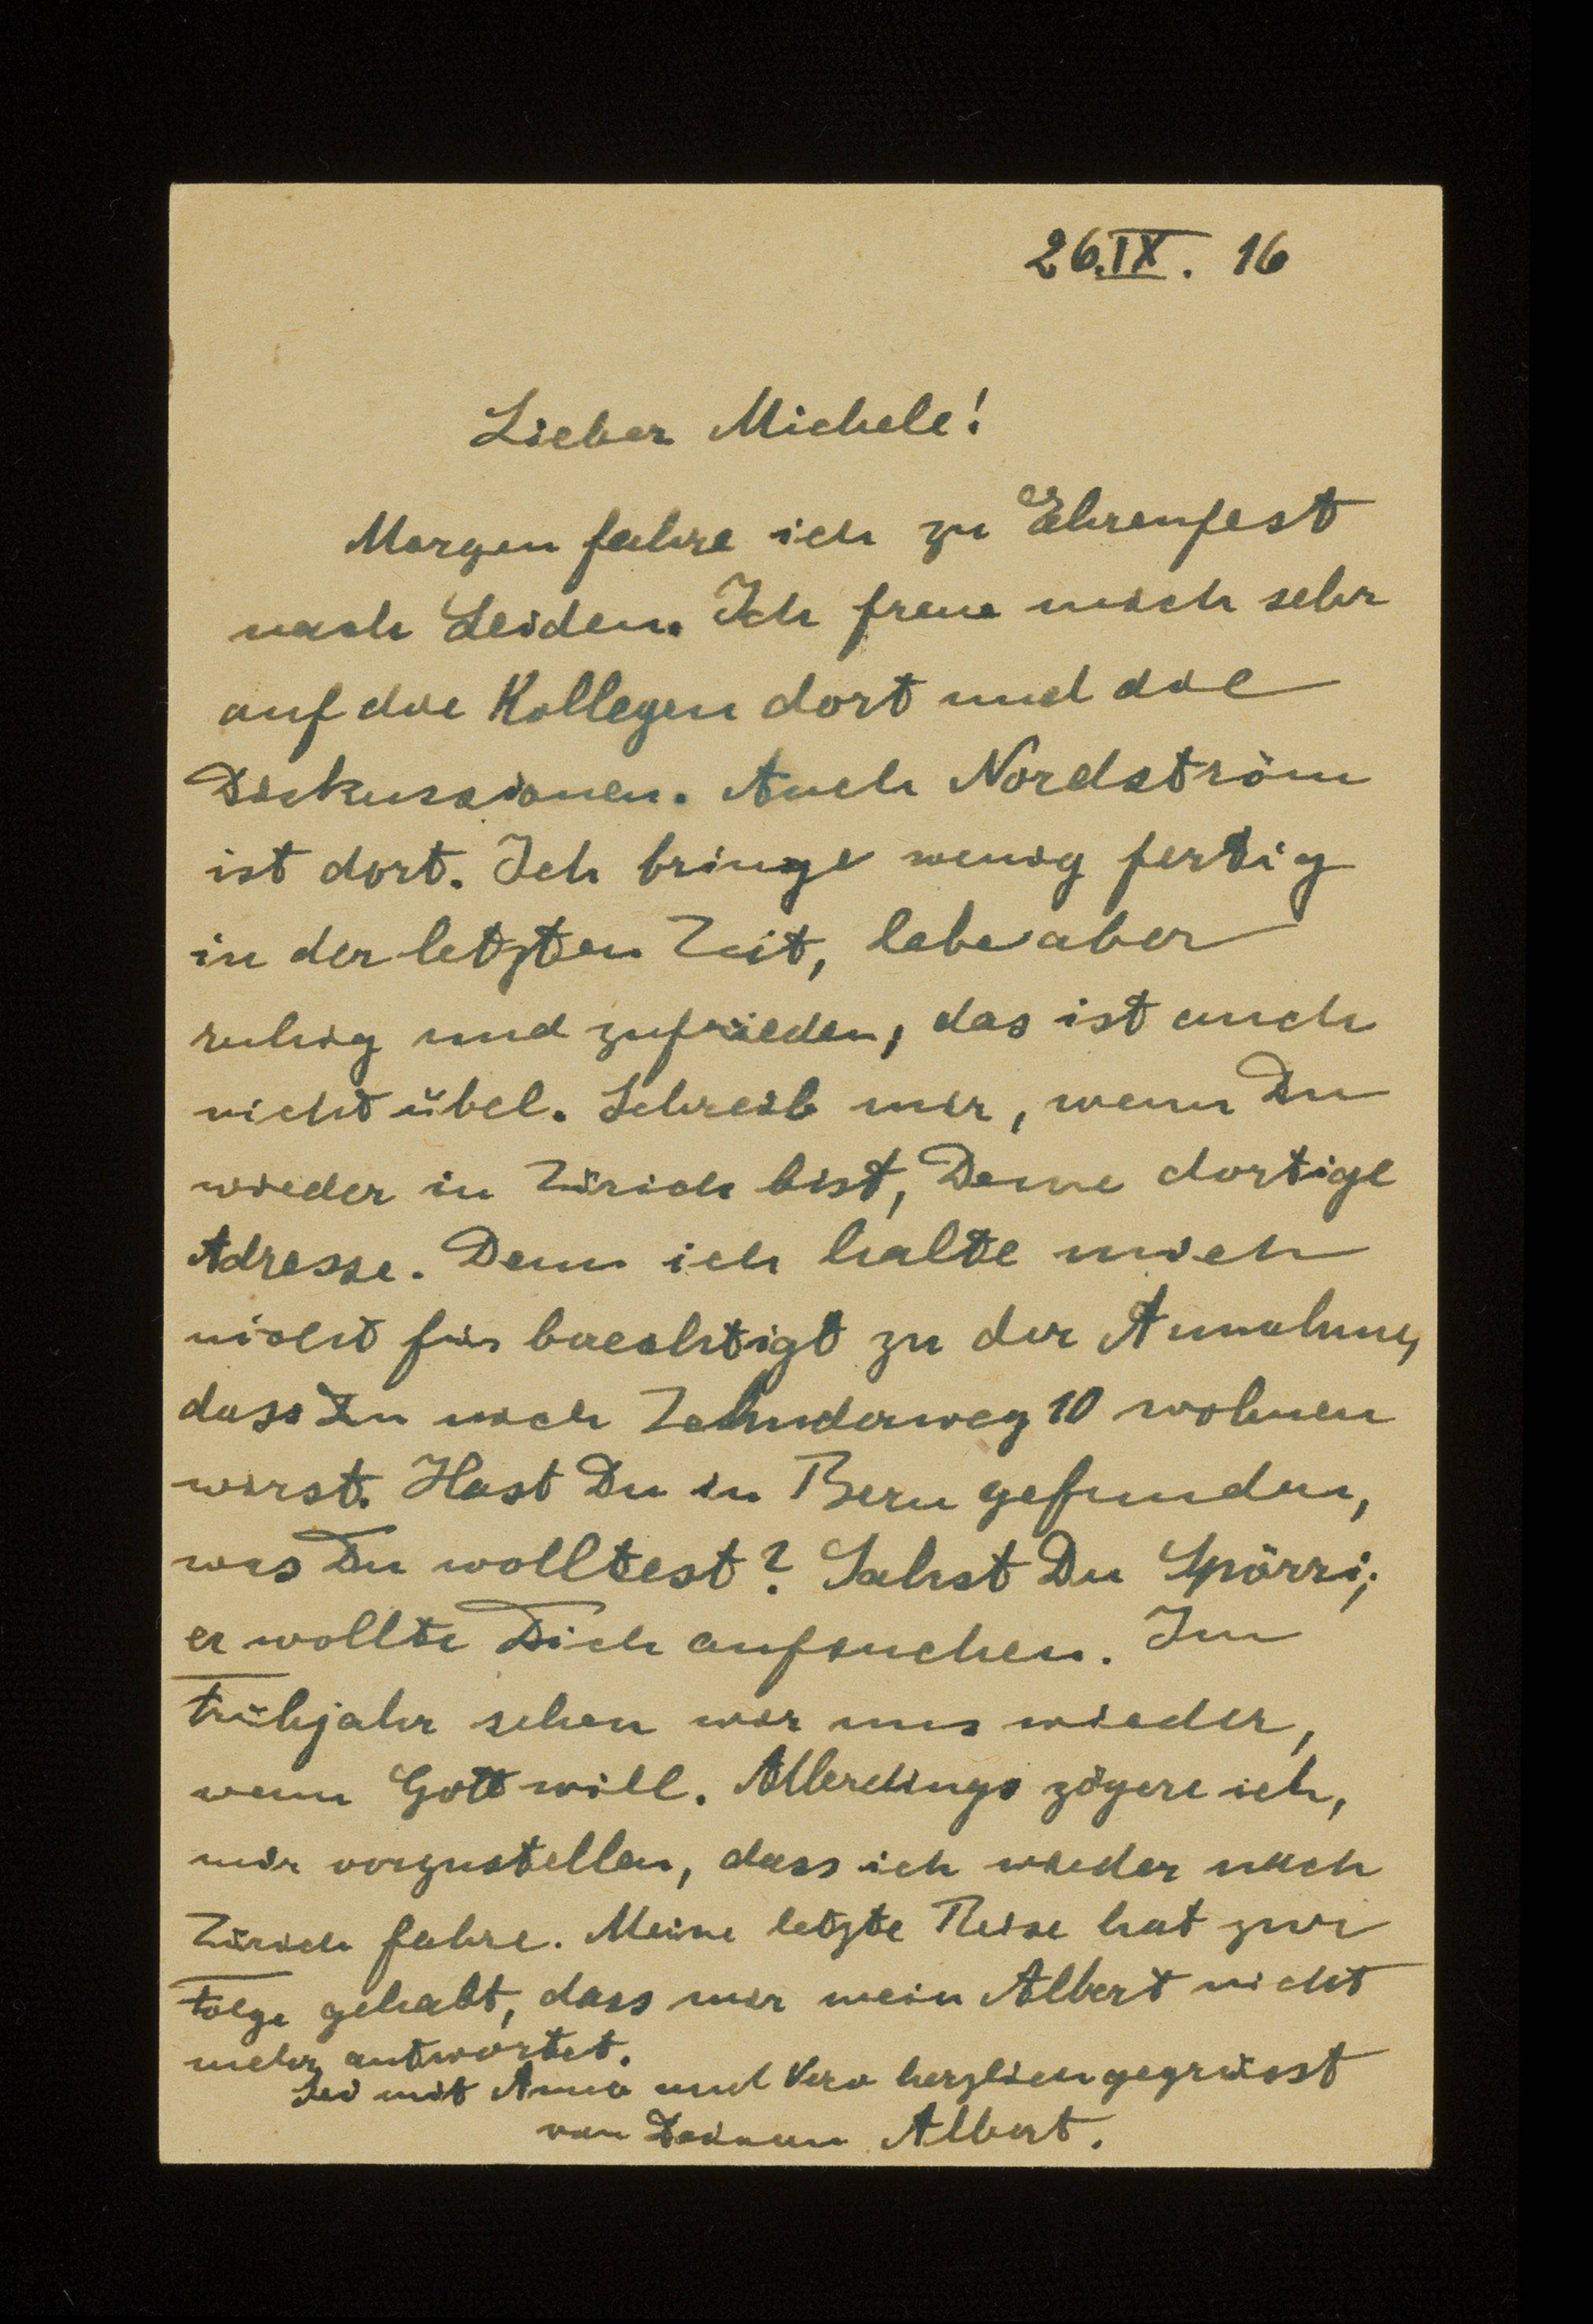 26.IX. 16
Lieber Michele!
Morgen fahre ich zu Ehrenfest
nach Leiden. Ich freue mich sehr
auf die Kollegen dort und die
Diskussionen. Auch Nordström
ist dort. Ich bringe wenig fertig
in der letzten Zeit, lebe aber
ruhig und zufrieden, das ist auch
nicht übel. Schreib mir, wenn Du
wieder in Zürich bist, Deine dortige
Adresse. Denn ich halte mich
nicht für berechtigt zu der Annahme,
dass Du noch Zehnderweg 10 wohnen
wirst. Hast Du in Bern gefunden,
was Du wolltest? Sahst Du Spörri;
er wollte Dich aufsuchen. Im
Frühjahr sehen wir uns wieder,
wenn Gott will. Allerdings zögere ich,
mir vorzustellen, dass ich wieder nach
Zürich fahre. Meine letzte Reise hat zur
Folge gehabt, dass mir mein Albert nicht
mehr antwortet.
Sei mit Anna und Vero herzlich gegrüsst
von Deinem Albert.